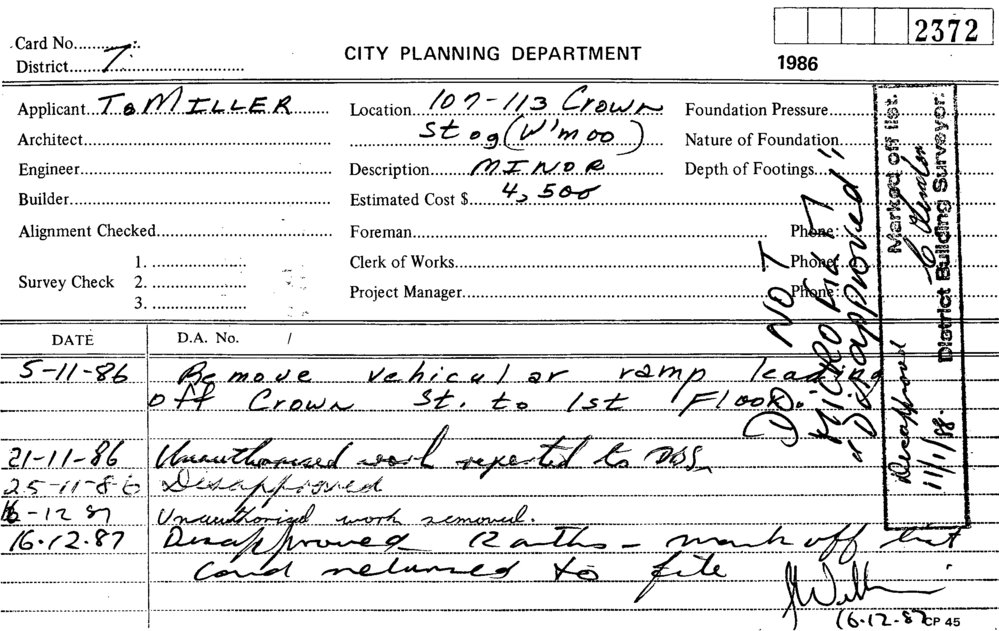 2372
Card No.
District 7
CITY PLANNING DEPARTMENT
1986
Applicant T. MILLER
Location 107-113 Crown
St (W'moo)
Foundation Pressure
Architect
Nature of Foundation
Engineer
Description MINOR
Depth of Footings
Builder
Estimated Cost $ 4,500
Alignment Checked
Foreman
Phone:
Survey Check
1.
2.
3.
Clerk of Works
Phone:
Project Manager
Phone:
DO NOT
MICRO
"Disapproved"
Marked off list.
District Building Surveyor.
Disapproved
11/1/88.
DATE
D.A. No. /
5-11-86 Remove vehicular ramp leading
off Crown St. to 1st Floor.
21-11-86 Unauthorised work reported to DBS.
25-11-86 Disapproved
12 87 Unauthorised work removed.
16.12.87 Disapproved 12 mths - mark off list
Card returned to file
16-12-87
CP 45